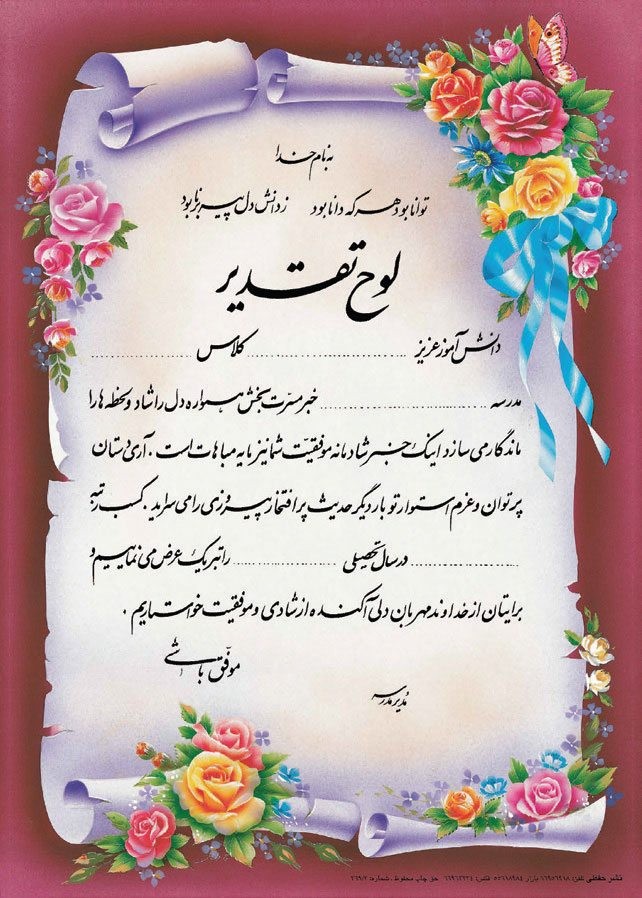 به نام خدا
توانا بود هر که دانا بود ز دانش دل پیر برنا بود
لوح تقدیر
دانش آموز عزیز ........................ کلاس ........................
مدرسه ........................ خبر مسرت بخش همواره دل را شاد و لحظه ها را
ماندگار می سازد اینک خبر شادمانه موفقیت شما نیز مایه مباهات است . آری دستان
پر توان و عزم استوار تو بار دیگر حدیث پر افتخار پیروزی را می سراید . کسب رتبه
........................ در سال تحصیلی ........................ را تبریک عرض می نماییم و
برایتان از خداوند مهربان دلی آکنده از شادی و موفقیت خواستاریم .
موفق باشی
مدیر مدرسه
نشر حفظی تلفن: ۶۶۹۵۶۹۱۸ بازار ۵۵۶۱۸۹۸۴ فاکس: ۶۶۹۶۳۲۳۴ حق چاپ محفوظ . شماره: